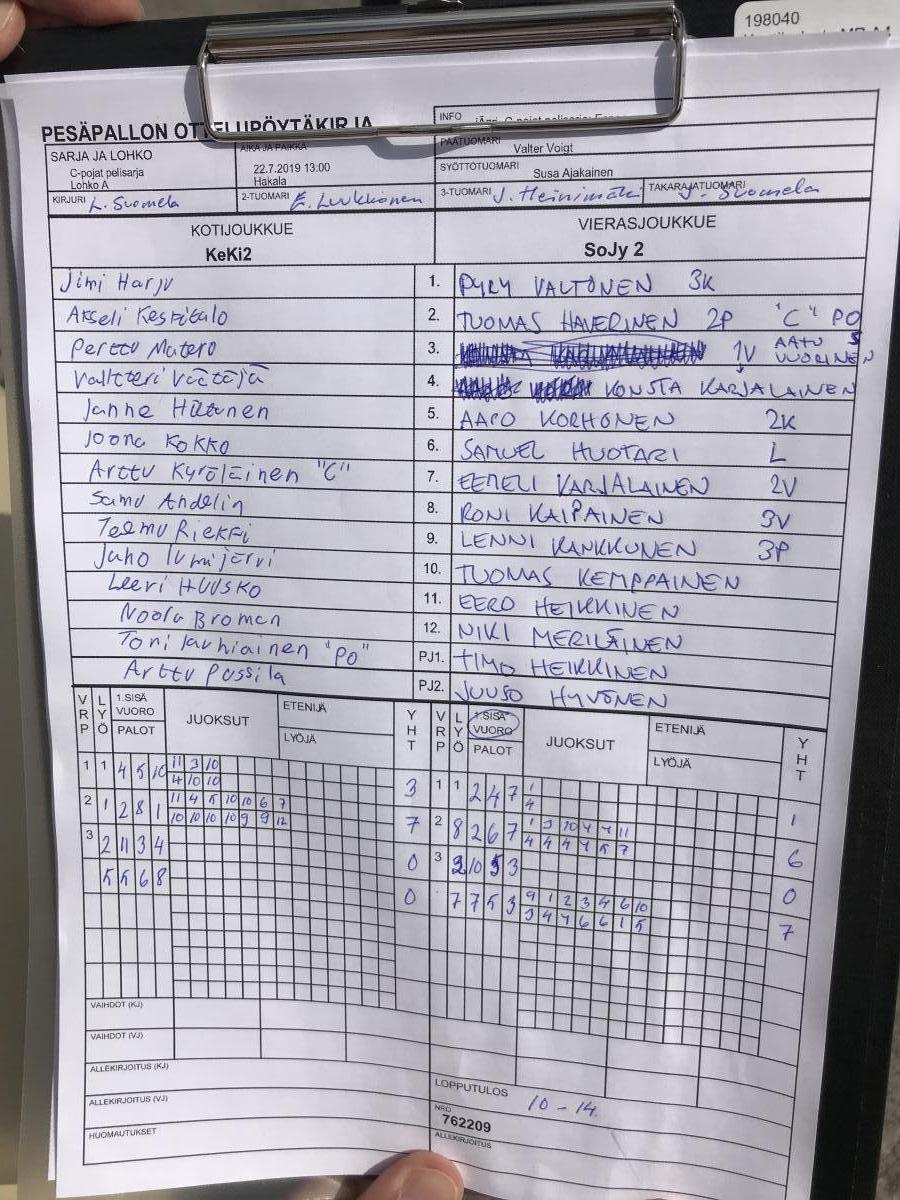 198040
PESÄPALLON OTTELUPÖYTÄKIRJA
INFO
SARJA JA LOHKO
C-pojat pelisarja
Lohko A
AIKA JA PAIKKA
22.7.2019 13:00
Hakala
PÄÄTUOMARI
Valter Voigt
SYÖTTÖTUOMARI
Susa Ajakainen
KIRJURI L. Suomela
2-TUOMARI E. Luukkonen
3-TUOMARI J. Heinimäki
TAKARAJATUOMARI J. Suomela
KOTIJOUKKUE
KeKi2
VIERASJOUKKUE
SoJy 2
Jimi Harju 1. PYRY VALTONEN 3K
Akseli Keskitalo 2. TUOMAS HAVERINEN 2P "C" PO
Perttu Matero 3. 1V AATU VUORINEN
Valtteri Väätäjä 4. KONSTA KARJALAINEN
Janne Hiltunen 5. AAPO KORHONEN 2K
Joona KOKKO 6. SAMUEL HUOTARI L
Arttu Kyröläinen "C" 7. EEMELI VARJALAINEN 2V
Samu Andelin 8. RONI KAIPAINEN 3V
Teemu Riekki 9. LENNI KANKKUNEN 3P
Juho lumijärvi 10. TUOMAS KEMPPAINEN
Leevi HUUSKO 11. EERO HEIKKINEN
Noola Broman 12. NIKI MERILÄINEN
Toni lauhiainen "PO" PJ1. TIMO HEIKKINEN
Arttu Possila PJ2. JUUSO HYVÖNEN
VRP LYÖ 1.SISÄ VUORO PALOT JUOKSUT ETENIJÄ LYÖJÄ YHT
VRP LYÖ 1.SISÄ VUORO PALOT JUOKSUT ETENIJÄ LYÖJÄ YHT
1 1 4 5 10 11 3 10 3
4 10 10
2 1 2 8 1 11 4 5 10 10 6 7 7
10 10 10 10 9 9 12
3 2 11 3 4 0
5 5 6 8 0
1 1 2 4 7 1 1
4
2 8 2 6 7 1 3 10 4 4 11 6
4 4 4 4 5 7
3 2 10 5 3 0
7 7 5 3 9 1 2 3 4 6 10 7
3 4 4 6 6 1 5
VAIHDOT (KJ)
VAIHDOT (VJ)
ALLEKIRJOITUS (KJ)
ALLEKIRJOITUS (VJ)
HUOMAUTUKSET
LOPPUTULOS 10 - 14
NRO
762209
ALLEKIRJOITUS